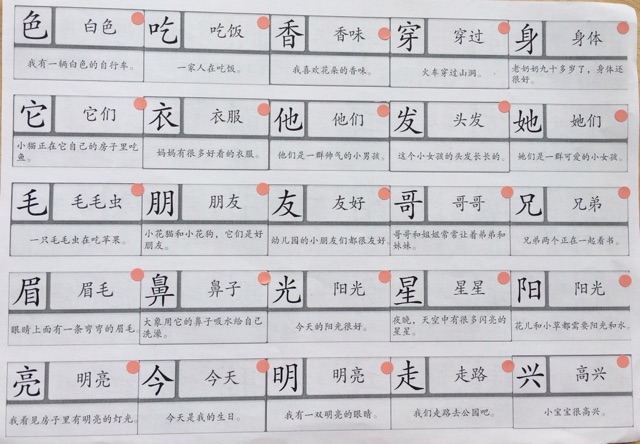 色 白色 吃 吃饭 香 香味 穿 穿过 身 身体
我有一辆白色的自行车。 一家人在吃饭。 我喜欢花朵的香味。 火车穿过山洞。 老奶奶九十多岁了，身体还
很好。
它 它们 衣 衣服 他 他们 发 头发 她 她们
小猫正在它自己的房子里吃 妈妈有很多好看的衣服。 他们是一群帅气的小男孩。 这个小女孩的头发长长的。 她们是一群可爱的小女孩。
鱼。
毛 毛毛虫 朋 朋友 友 友好 哥 哥哥 兄 兄弟
一只毛毛虫在吃苹果。 小花猫和小花狗，它们是好 幼儿园的小朋友们都很友好。 哥哥和姐姐常常让着弟弟和 兄弟两个正在一起看书。
朋友。 妹妹。
眉 眉毛 鼻 鼻子 光 阳光 星 星星 阳 阳光
眼睛上面有一条弯弯的眉毛。 大象用它的鼻子吸水给自己 今天的阳光很好。 夜晚，天空中有很多闪亮的 花儿和小草都需要阳光和水。
洗澡。 星星。
亮 明亮 今 今天 明 明亮 走 走路 兴 高兴
我看见房子里有明亮的灯光。 今天是我的生日。 我有一双明亮的眼睛。 我们走路去公园吧。 小宝宝很高兴。